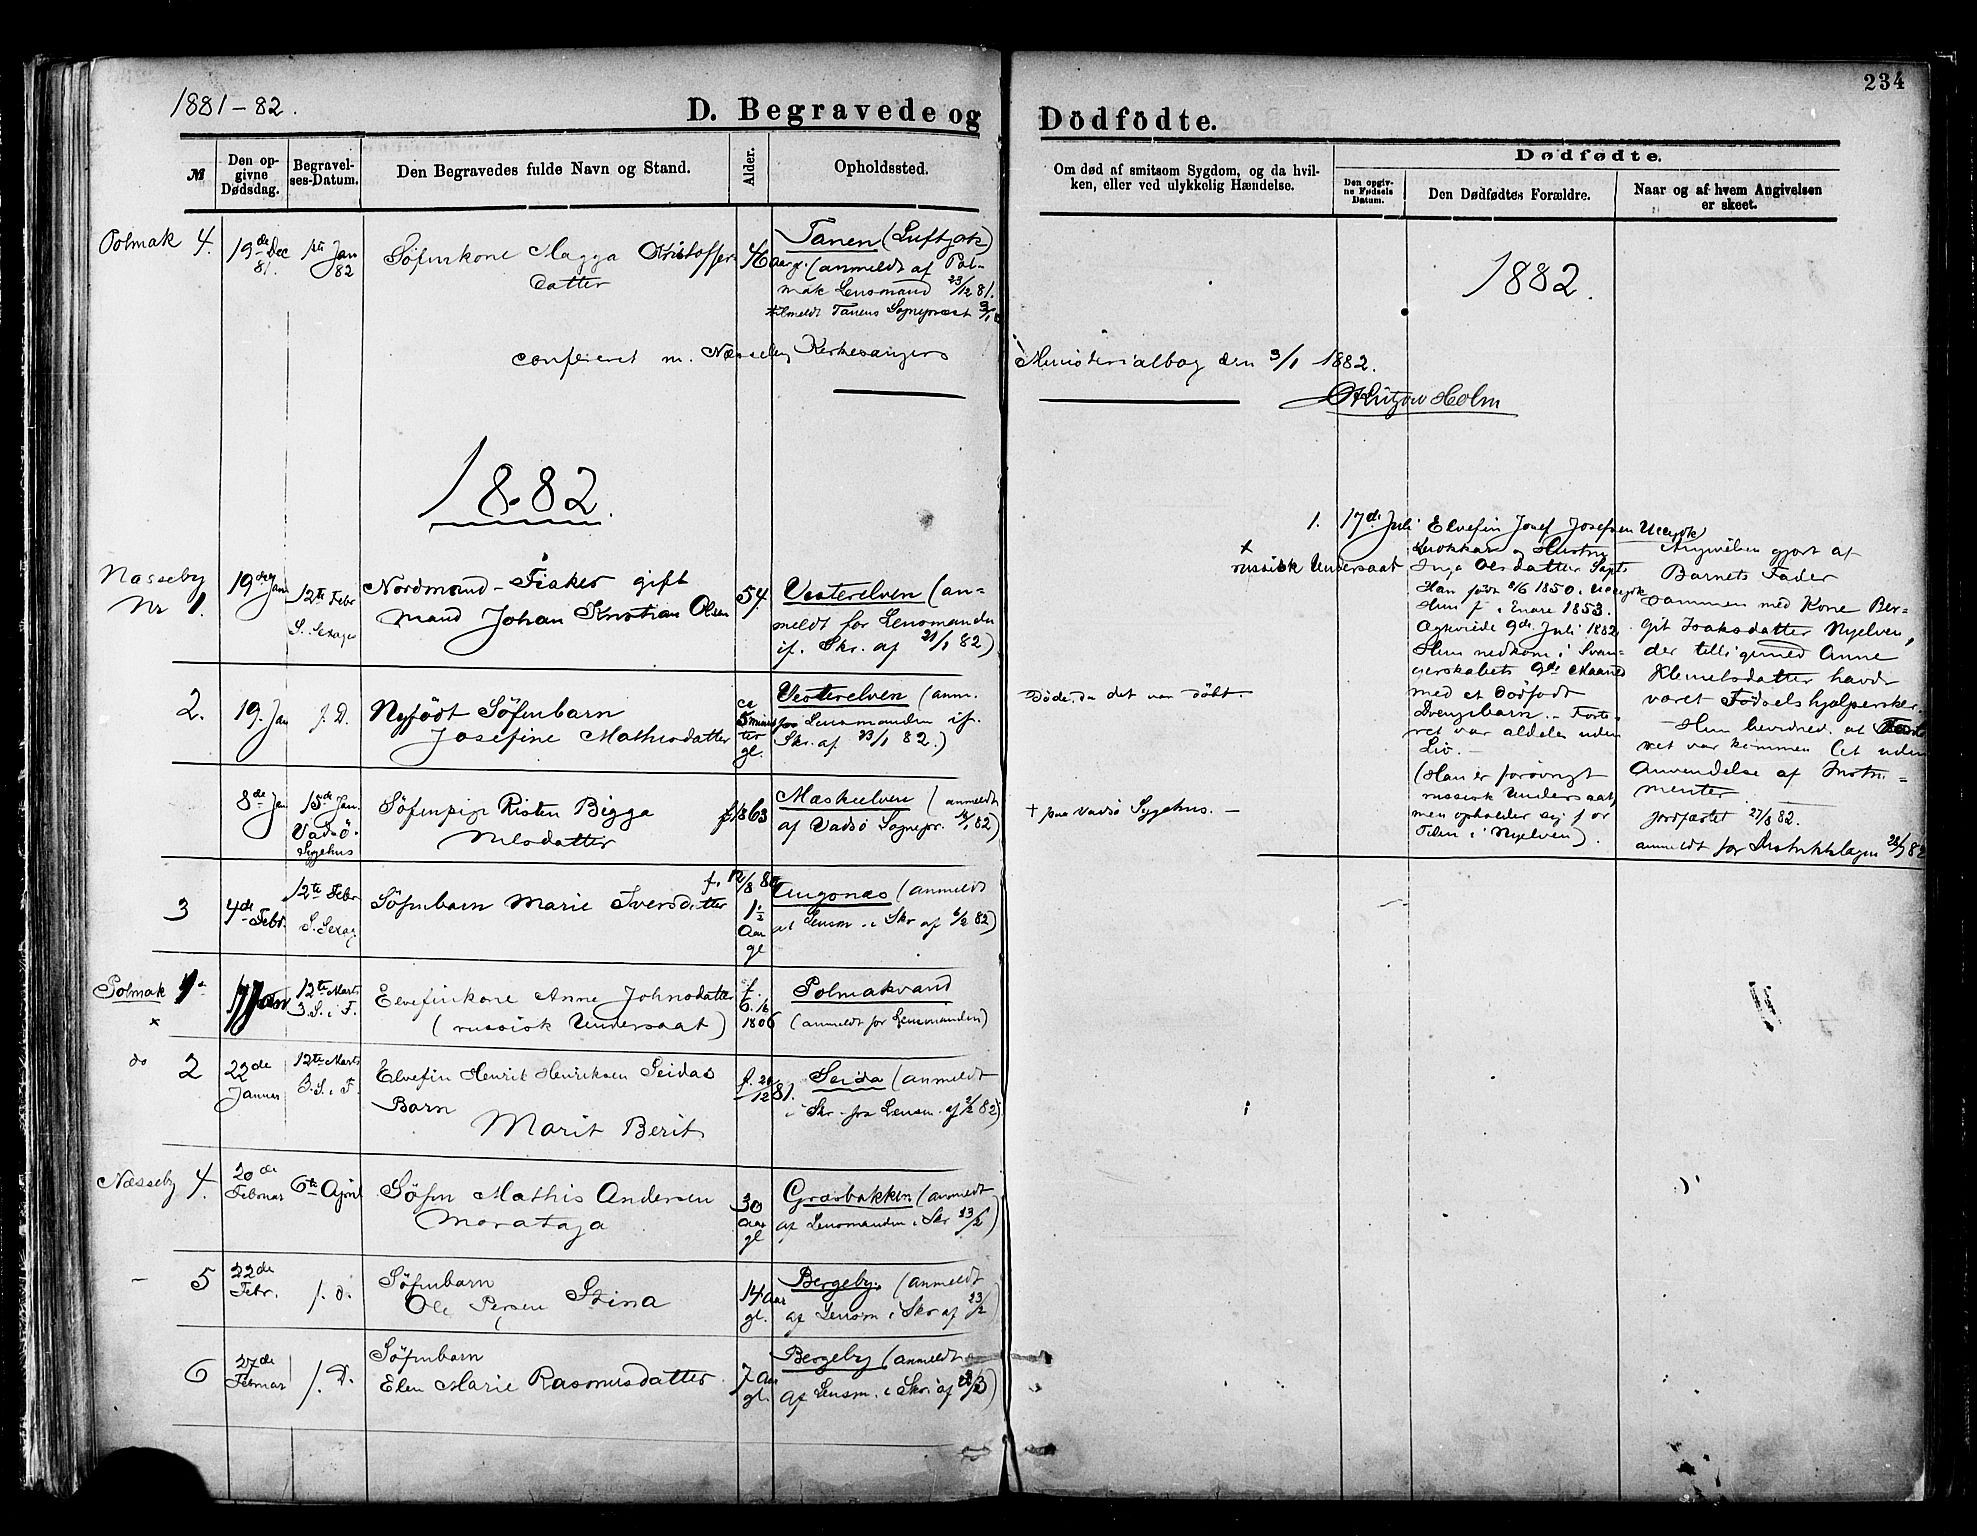 234
1881-82.
D. Begravede og Dödfödte.
№
Den op-
givne
Dødsdag.
Begravel-
ses-Datum.
Den Begravedes fulde Navn og Stand.
Alder.
Opholdssted.
Om død af smitsom Sygdom, og da hvil-
ken, eller ved ulykkelig Hændelse.
Dødfødte.
Den opgiv-
ne Fødsels
Datum.
Den Dødfødtes Forældre.
Naar og af hvem Angivelsen
er skeet.
Polmak 4. 19de Dec 81. Jan 82 Söfinkone Magga Kristoffers
datter
46 Aar gl.
Tanen (Luftjok)
(anmeldt af Pol-
mak Lensmand 23/12 81.
Tanens Sognepræst
1882.
confereret m. Næsseby Kirkesangers Ministerialbog den 3/1 1882.
Lützow Holm
1882.
Næsseby
Nr 1. 19de Jan 12te Febr
S. Sexages
Nordmand - Fisker gift
mand Johan Kristian Olsen
54
Vesterelven (an-
meldt for Lensmanden
if. Skr. af 21/1 82)
2. 19. Jan s. D. Nyfödt Söfinbarn
Josefine Mathisdatter
ca
5 minut-
ter
gl.
Vesterelven (anm.
for Lensmanden if.
Skr. af 23/1 82.)
Döde, da det var döbt. -
8de Jan 15de Jan.
Vadsö
Sygehus
Söfinpige Risten Bigga
Nilsdatter
f. 1863
Mæskelven (anmeldt
af Vadsö Sognepr.
† paa Vadsö Sygehus. -
3 4de Febr. 12te Febr
S. Sexag.
Söfinbarn Marie Iversdatter
f. 12/8 80
1½
Aar
gl
Angsnæs (anmeldt
af Lensm. i Skr af 6/2 82)
Polmak 1. 17 Jan 12te Marts
3. S. i F.
×
Elvefinkone Anne Johnsdatter
(russisk Undersaat)
f.
1806
Polmakvand
(anmeldt for Lensmanden)
do 2 22de
Januar
12te Marts
3. S. i F.
Elvefin Henrik Henriksen Seidas
Barn
Marit Berit
f. 20/12 81.
Seida (anmeldt
i Skr. fra Lensm. af 2/2 82)
Næsseby 4. 20de
Februar
6te April
Söfin Mathis Andersen
Morataja
30
Aar
gl
Græsbakken (anmeldt
af Lensmanden i Skr 23/2)
- 5 22de
Febr. s. d.
Söfinbarn
Ole Persen Stina
14 Aar
gl.
Bergeby. (anmeldt
af Lensm i Skr af 23/2)
6 27de
Februar s. D.
Söfinbarn
Elen Marie Rasmusdatter
7 Aar
gl.
Bergeby (anmeldt
af Lensm. i Skr af
1. 17de Juli
×
russisk Undersaat
Elvefin Josef Josefsen Utsjok
og Hustru
Inga Olsdatter
Han født 1850 i Utsjok
Hun f. i Enare 1853.
Ægteviede 9de Juli 1882
Hun nedkom i Svan-
gerskabets 9de Maaned
med et Dödfödt
Drengebarn. - Foste-
ret var aldeles uden
Liv. -
(Han er forövrigt
russisk Undersaat,
men opholder sig for
Tiden i Nyelven).
Angivelsen gjort af
Barnets Fader
sammen med Kone Ber-
git Isaksdatter Nyelven,
der tilligemed Anne
Klemetsdatter havde
været Fødselshjælpersker.
- Hun bevidned, at Foste-
ret var kommen let uden
Anvendelse af Instru-
menter. -
Jordfæstet 27/8 82.
anmeldt for Distriktslægen